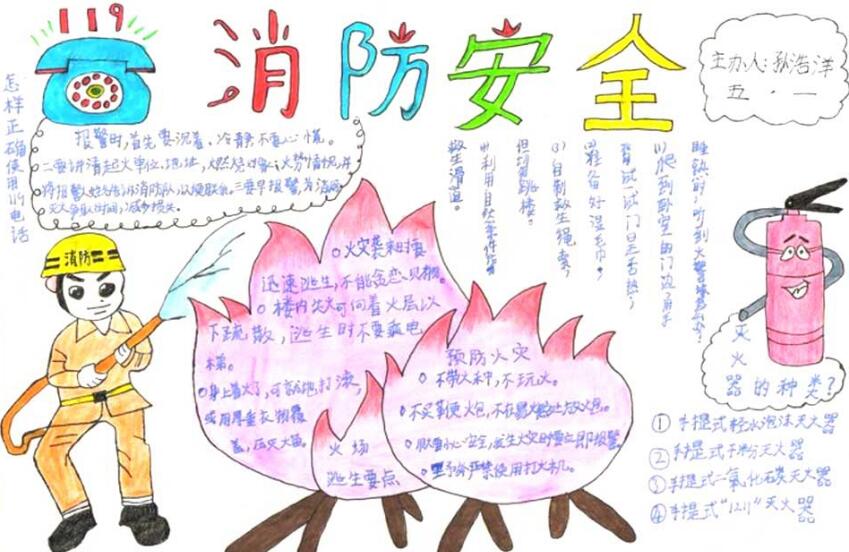 119
消防安全
主办人：孙浩洋
五．一
怎样正确使用119电话
报警时，首先要沉着、冷静不要心慌。
二要讲清起火单位，地址，火势情况，并
将报警
三要早报警，为消防
灭火争取时间，减少损失。
睡熟时，听到火警
(1)爬到卧室的门边，用手
背试一试门是否热；
(2)准备好湿毛巾；
(3)自制救生绳索，
但切勿跳楼。
(4)利用自然条件作
救生滑道。
消防
火灾袭来时要
迅速逃生，不能贪恋财物。
楼内失火可向着火层以
下疏散，逃生时不要乘电
梯。
身上着火了，可就地打滚，
或用厚重衣物覆
盖，压灭火苗。
火场
逃生要点
预防火灾
不带火种，不玩火。
不买鞭炮，
安全，发生火灾时要立即报警。
严禁使用打火机。
灭火器的种类？
①手提式轻水泡沫灭火器
②手提式干粉灭火器
③手提式二氧化碳灭火器
④手提式"1211"灭火器